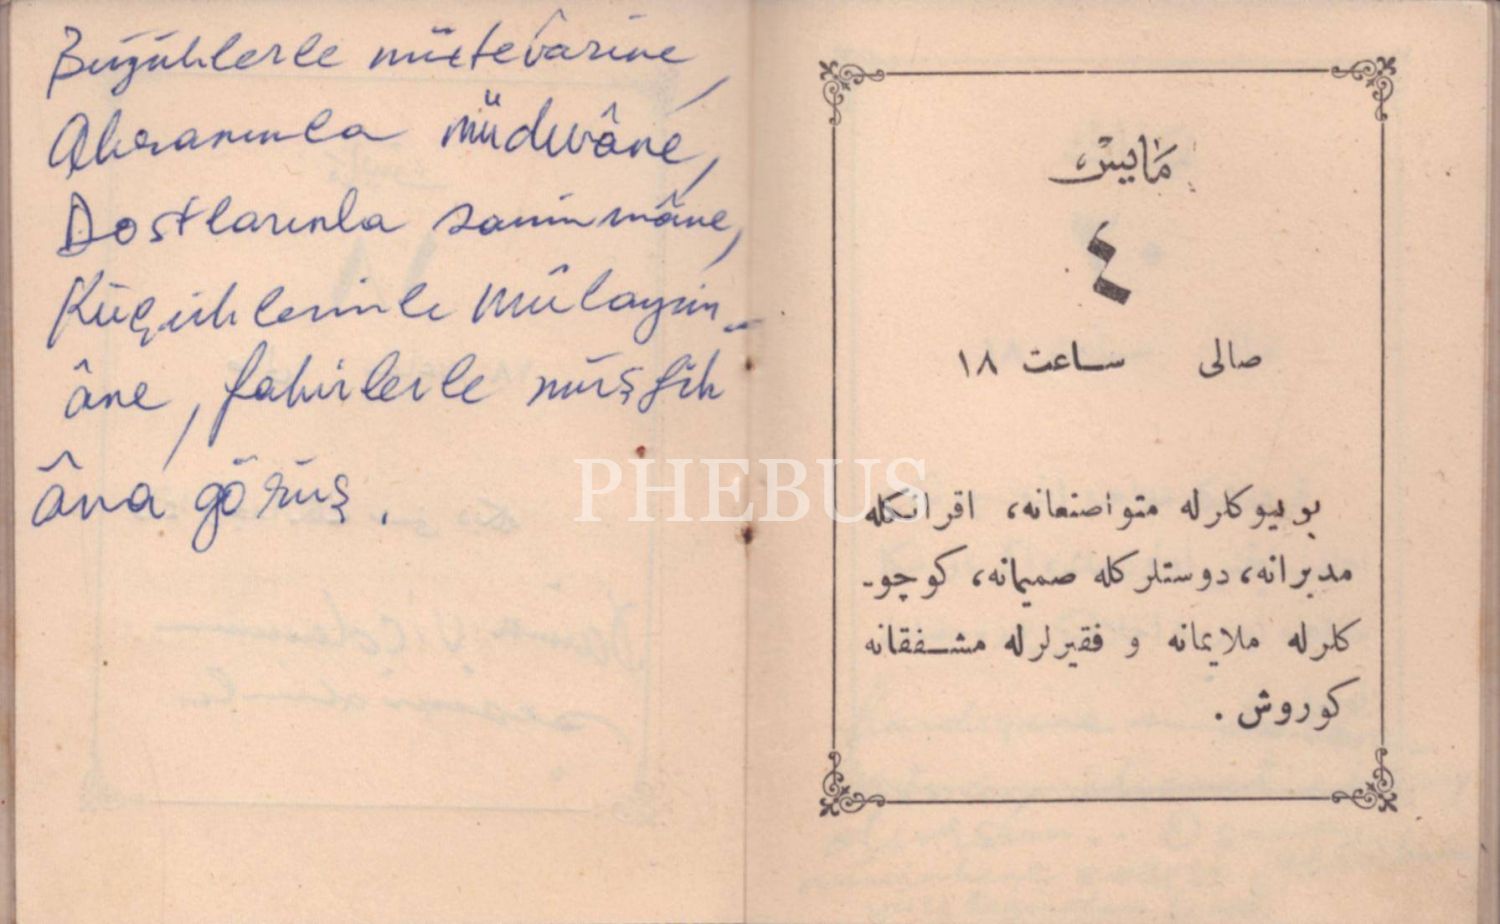 Büyüklerle mütevazine,
Akranınla müdivâne,
Dostlarınla samimmâne,
Küçüklerinle mülayim-
âne, fakirlerle müşfik
âna görüş.
مايس
٤
صالى ساعت ١٨
بويوكلرله متواضعانه، اقرانكله
مدبرانه، دوستلركله صميمانه، كوچو-
كلرله ملايمانه و فقيرلرله مشفقانه
كوروش.
PHEBUS